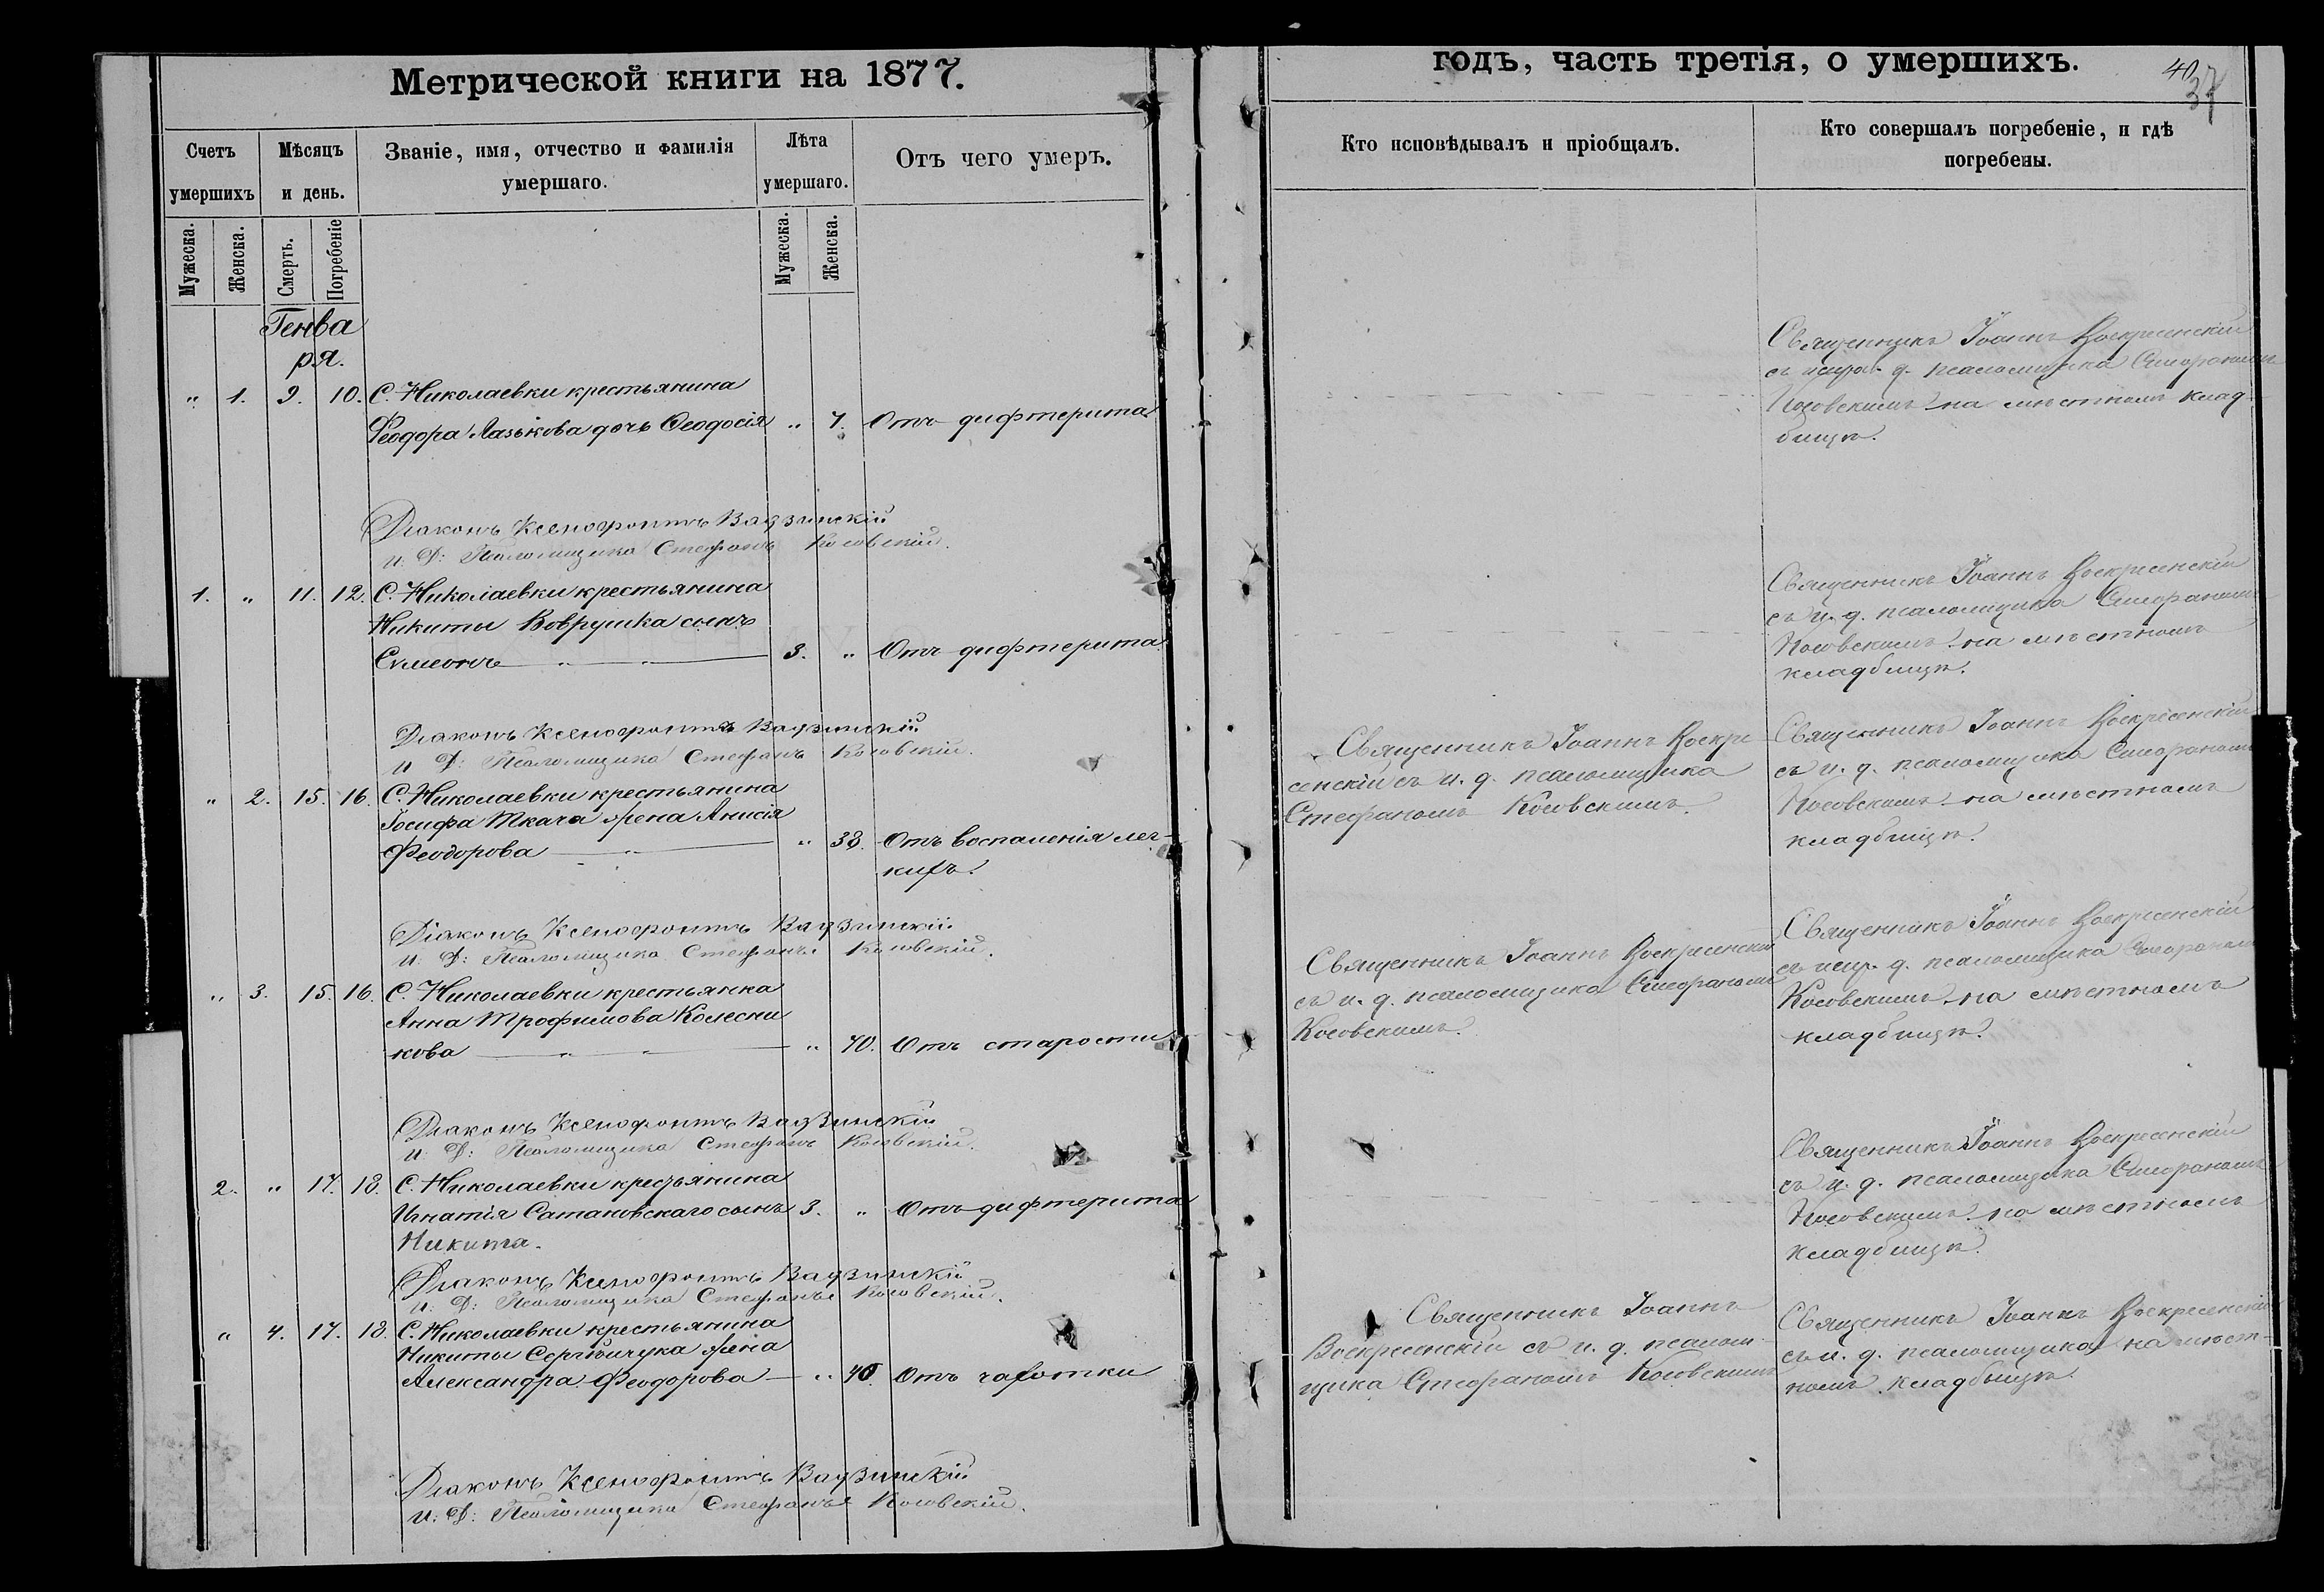 Метрической книги на 1877.
Счетъ умершихъ
Мѣсяцъ и день.
Званіе, имя, отчество и фамилія умершаго.
Лѣта умершаго.
Отъ чего умеръ.
Мужеска.
Женска.
Смерть.
Погребеніе
Мужеска.
Женска.
Генва
ря.
" 1. 9. 10. С. Николаевки крестьянина
Феодора Лазькова дочь Ѳеодосія " 7. Отъ дифтерита
Діаконъ Ксенофонтъ Вадзинскій
и. Д: Псаломщика Стефанъ Косовскій.
1. " 11. 12. С. Николаевки крестьянина
Никиты Воврушка сынъ
Сѵмеонъ " " 3. " Отъ дифтерита
Діаконъ Ксенофонтъ Вадзинскій
и Д: Псаломщика Стефанъ Косовскій.
" 2. 15. 16. С. Николаевки крестьянина
Іосифа Ткача жена Анисія
Феодорова " " 38. Отъ воспаленія лег-
кихъ.
Діаконъ Ксенофонтъ Вадзинскій
и. Д: Псаломщика Стефанъ Косовскій.
" 3. 15. 16. С. Николаевки крестьянка
Анна Трофимова Колесни
кова " " " 70. Отъ старости
Діаконъ Ксенофонтъ Вадзинскій
и. Д: Псаломщика Стефанъ Косовскій.
2. " 17. 18. С. Николаевки крестьянина
Игнатія Сатановскаго сынъ 3. " Отъ дифтерита
Никита.
Діаконъ Ксенофонтъ Вадзинскій
и. Д: Псаломщика Стефанъ Косовскій.
" 4. 17. 18. С. Николаевки крестьянина
Никиты жена
Александра Феодорова " 40 Отъ чахотки
Діаконъ Ксенофонтъ Вадзинскій
и. Д: Псаломщика Стефанъ Косовскій.
годъ, часть третія, о умершихъ.
40
37
Кто исповѣдывалъ и пріобщалъ.
Кто совершалъ погребеніе, и гдѣ погребены.
Священникъ Іоаннъ Воскресенскій
съ испр. д. псаломщика Стефаномъ
Косовскимъ на мѣстномъ клад
бищѣ.
Священникъ Іоаннъ Воскресенскій
съ и. д. псаломщика Стефаномъ
Косовскимъ на мѣстномъ
кладбищѣ.
Священникъ Іоаннъ Воскре
сенскій съ и. д. псаломщика
Стефаномъ Косовскимъ.
Священникъ Іоаннъ Воскресенскій
съ и. д. псаломщика Стефаномъ
Косовскимъ на мѣстномъ
кладбищѣ.
Священникъ Іоаннъ Воскресенскій
съ и. д. псаломщика Стефаномъ
Косовскимъ.
Священникъ Іоаннъ Воскресенскій
съ испр. д. псаломщика Стефаномъ
Косовскимъ на мѣстномъ
кладбищѣ.
Священникъ Іоаннъ Воскресенскій
съ и. д. псаломщика Стефаномъ
Косовскимъ на мѣстномъ
кладбищѣ.
Священникъ Іоаннъ
Воскресенскій съ и. д. псалом
щика Стефаномъ Косовскимъ
Священникъ Іоаннъ Воскресенскій
съ и. д. псаломщика на мѣст-
номъ кладбищѣ.